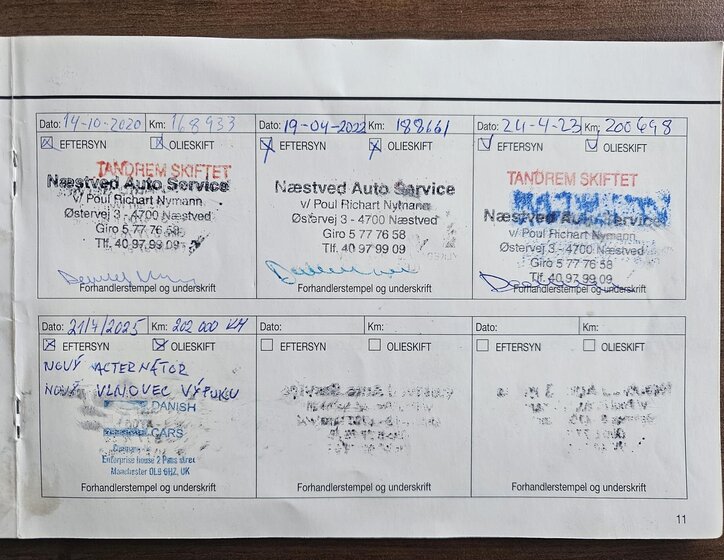 Dato: 14-10-2020 Km: 168933
EFTERSYN OLIESKIFT
TANDREM SKIFTET
Næstved Auto Service
v/ Poul Richart Nymann
Østervej 3 - 4700 Næstved
Giro 5 77 76 58
Tlf. 40 97 99 09
Forhandlerstempel og underskrift
Dato: 19-04-2022 Km: 188661
EFTERSYN OLIESKIFT
Næstved Auto Service
v/ Poul Richart Nymann
Østervej 3 - 4700 Næstved
Giro 5 77 76 58
Tlf. 40 97 99 09
Forhandlerstempel og underskrift
Dato: 24-4-23 Km: 200648
EFTERSYN OLIESKIFT
TANDREM SKIFTET
Næstved Auto Service
v/ Poul Richart Nymann
Østervej 3 - 4700 Næstved
Giro 5 77 76 58
Tlf. 40 97 99 09
Forhandlerstempel og underskrift
Dato: 21/7/2025 Km: 202 000 KM
EFTERSYN OLIESKIFT
NOVÝ ALTERNÁTOR
NOVÝ VLNOVEC VÝFUKU
DANISH
CARS
Enterprise house 2 Pass street
Manchester OL9 6HZ, UK
Forhandlerstempel og underskrift
Dato: Km:
EFTERSYN OLIESKIFT
Forhandlerstempel og underskrift
Dato: Km:
EFTERSYN OLIESKIFT
Forhandlerstempel og underskrift
11